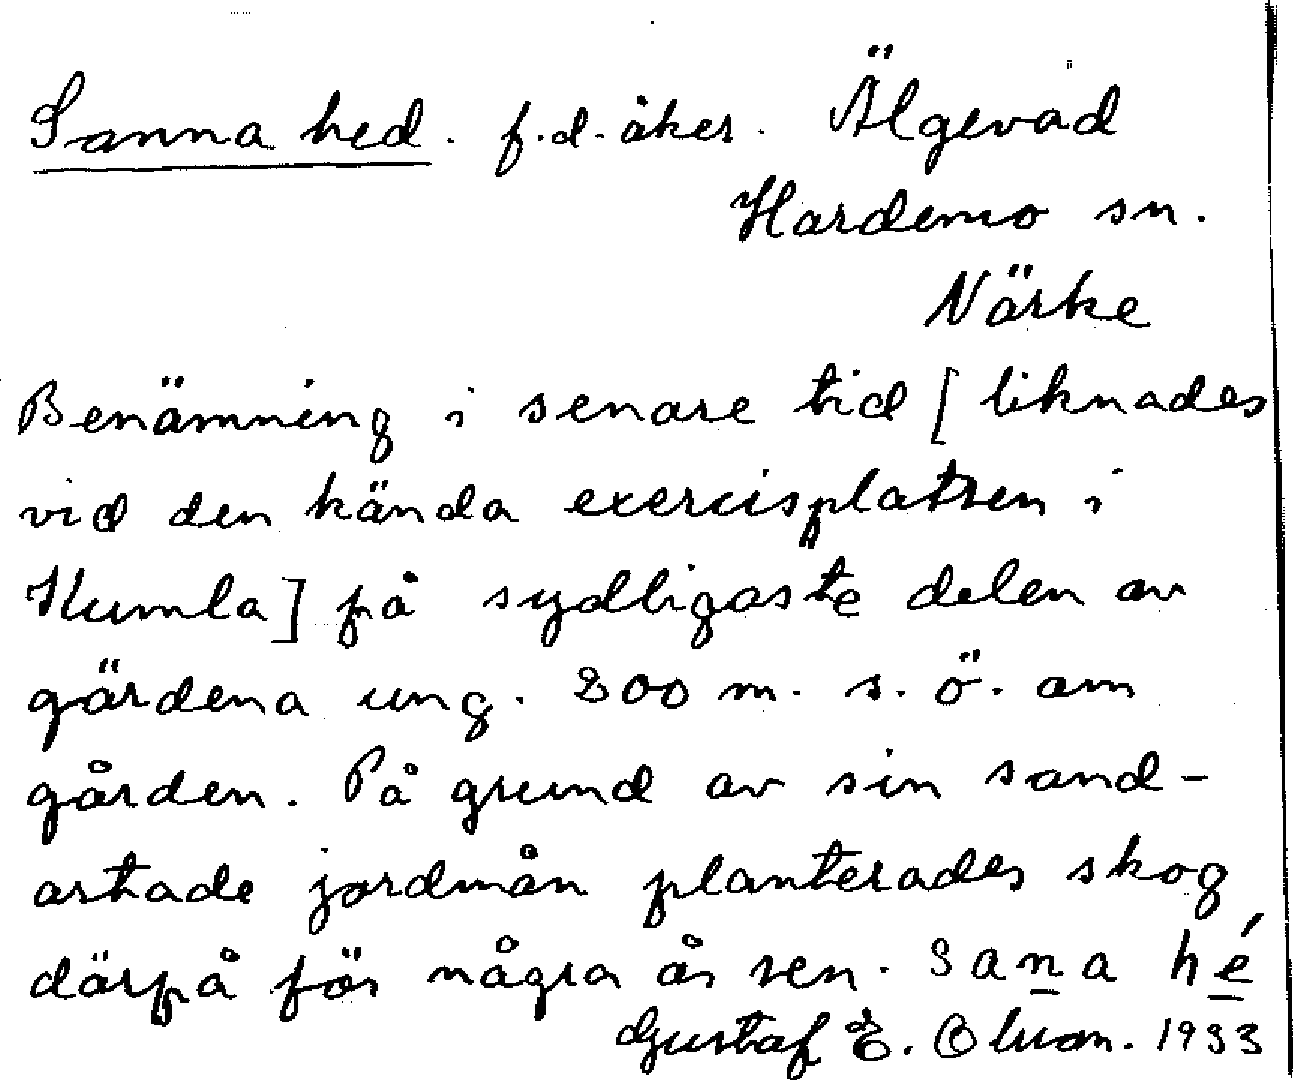 Sanna hed. f.d. åker. Älgevad
Hardemo sn.
Närke
Benämning i senare tid [liknades
vid den kända exercisplatsen i
Kumla] på sydligaste delen av
gärdena ung. 200 m. s. ö. om
gården. På grund av sin sand-
artade jordmån planterades skog
därpå för några år sen. Sana hé
Gustaf E. 1933